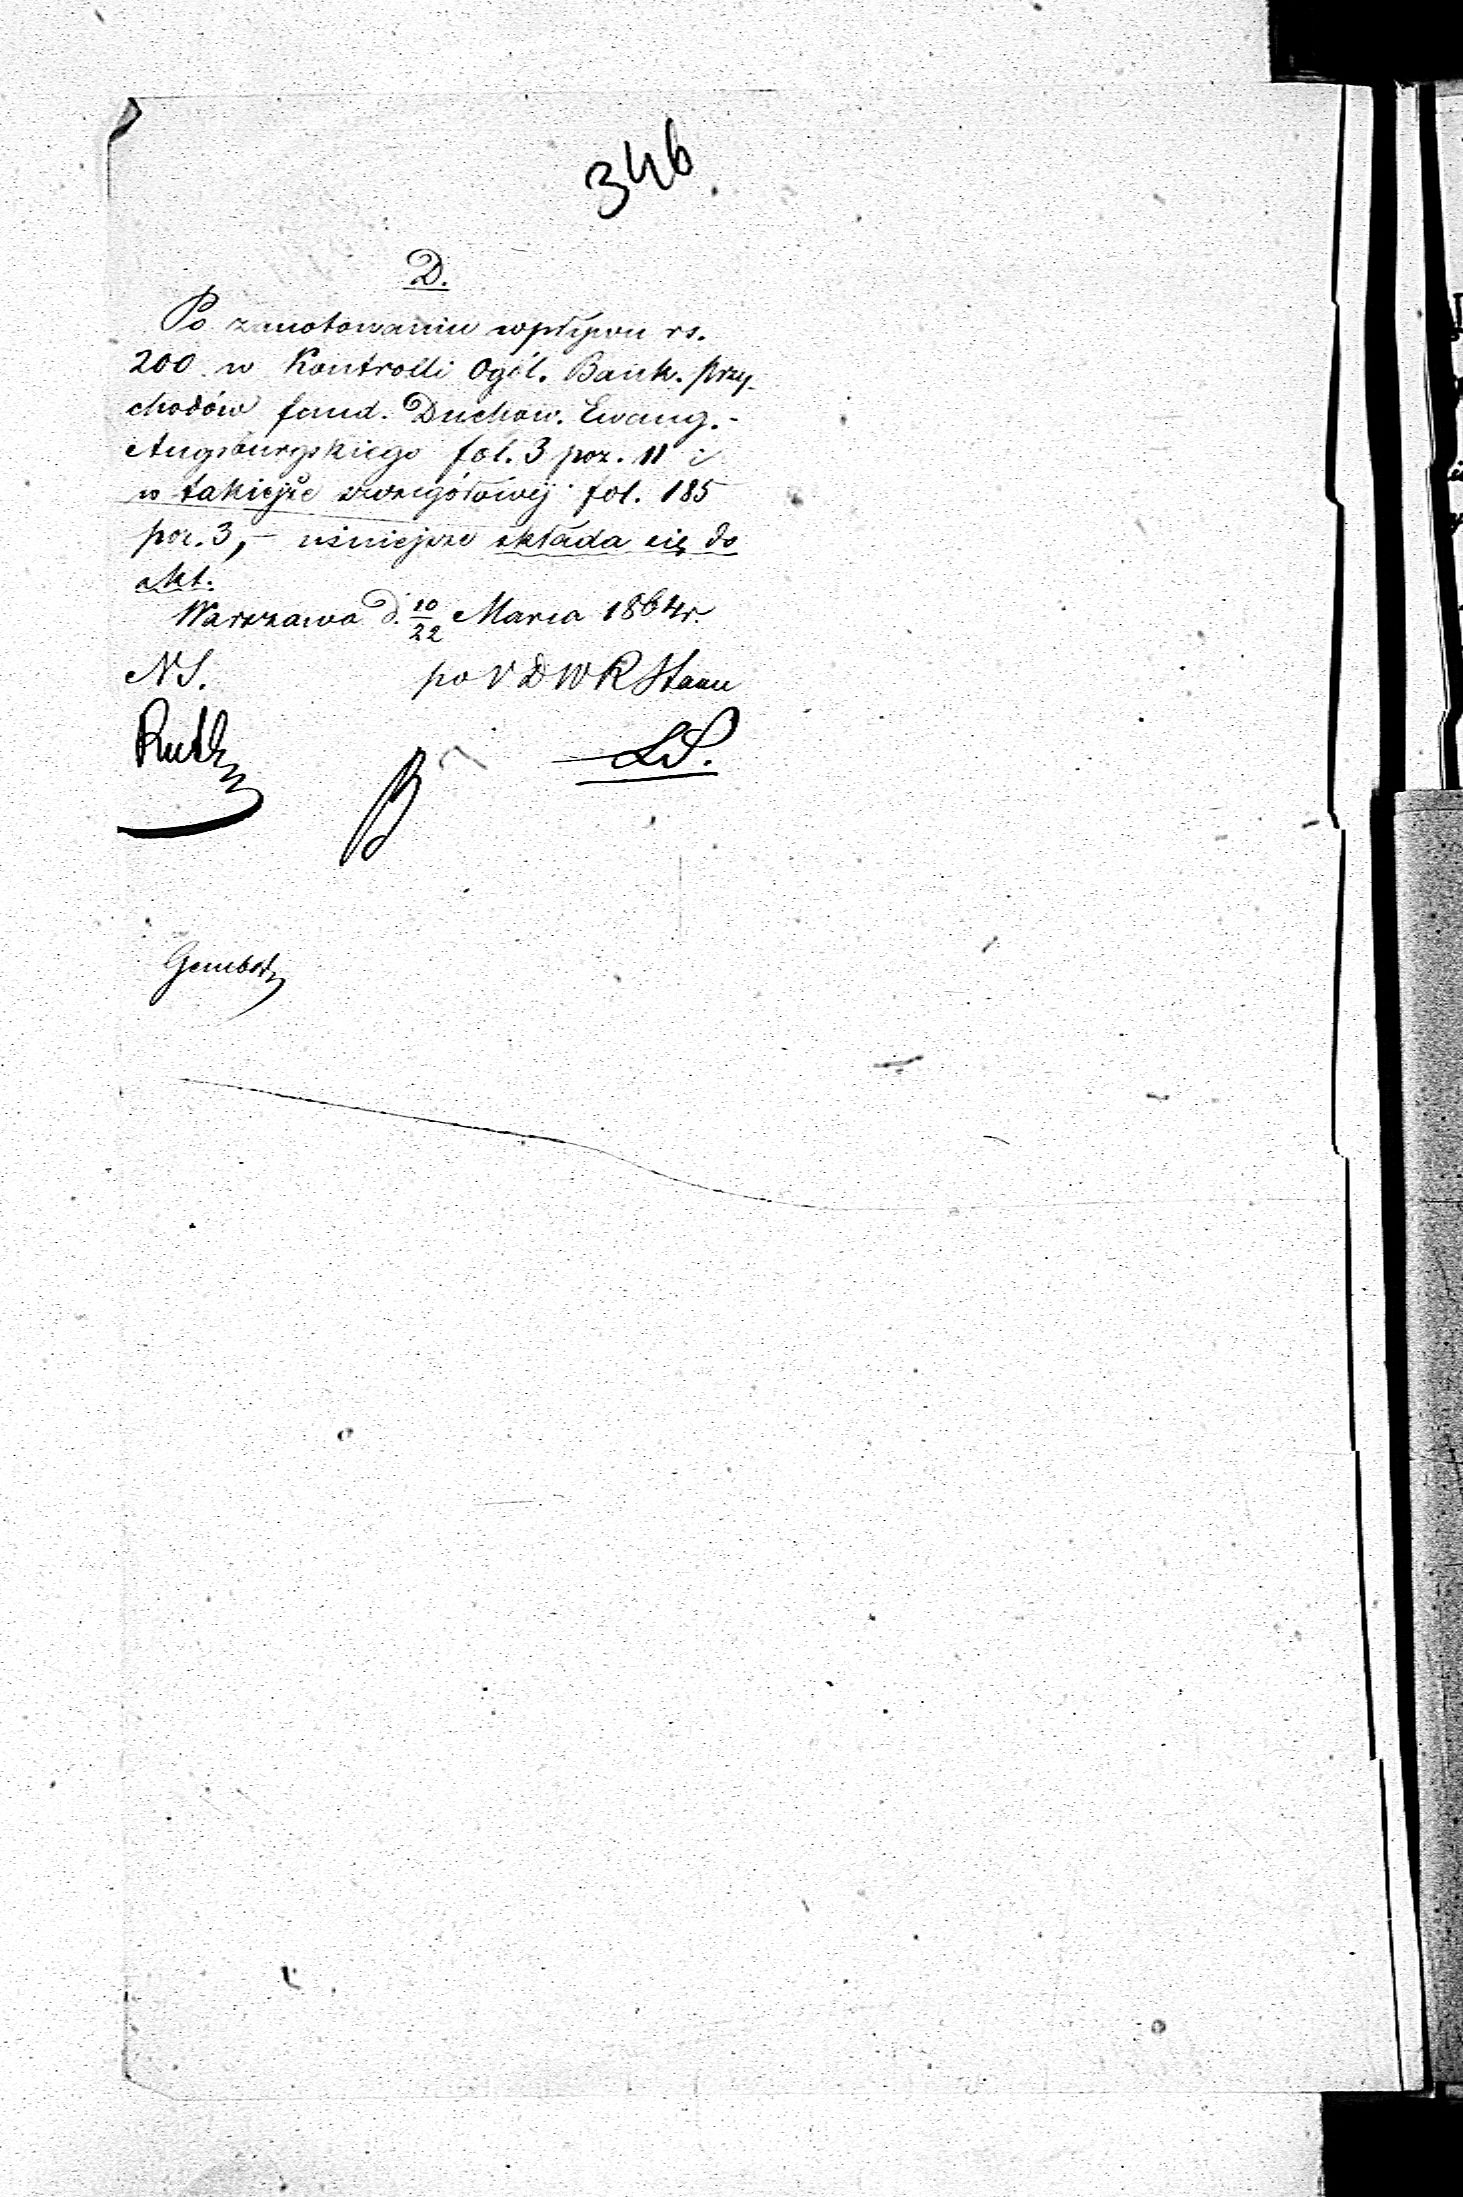 346
D.
Po zanotowaniu wpływu rs.
200 w Kontrolli Ogól. Bank. Przy-
chodów fund. Duchow. Ewang.-
Augsburgskiego fol. 3 poz. 11 i
w takiejże szczegółowej fol. 185
poz. 3, – niniejsze składa się do
akt.
Warszawa d. 10/22 Marca 1864 r.
NS. po V D W R Stanu